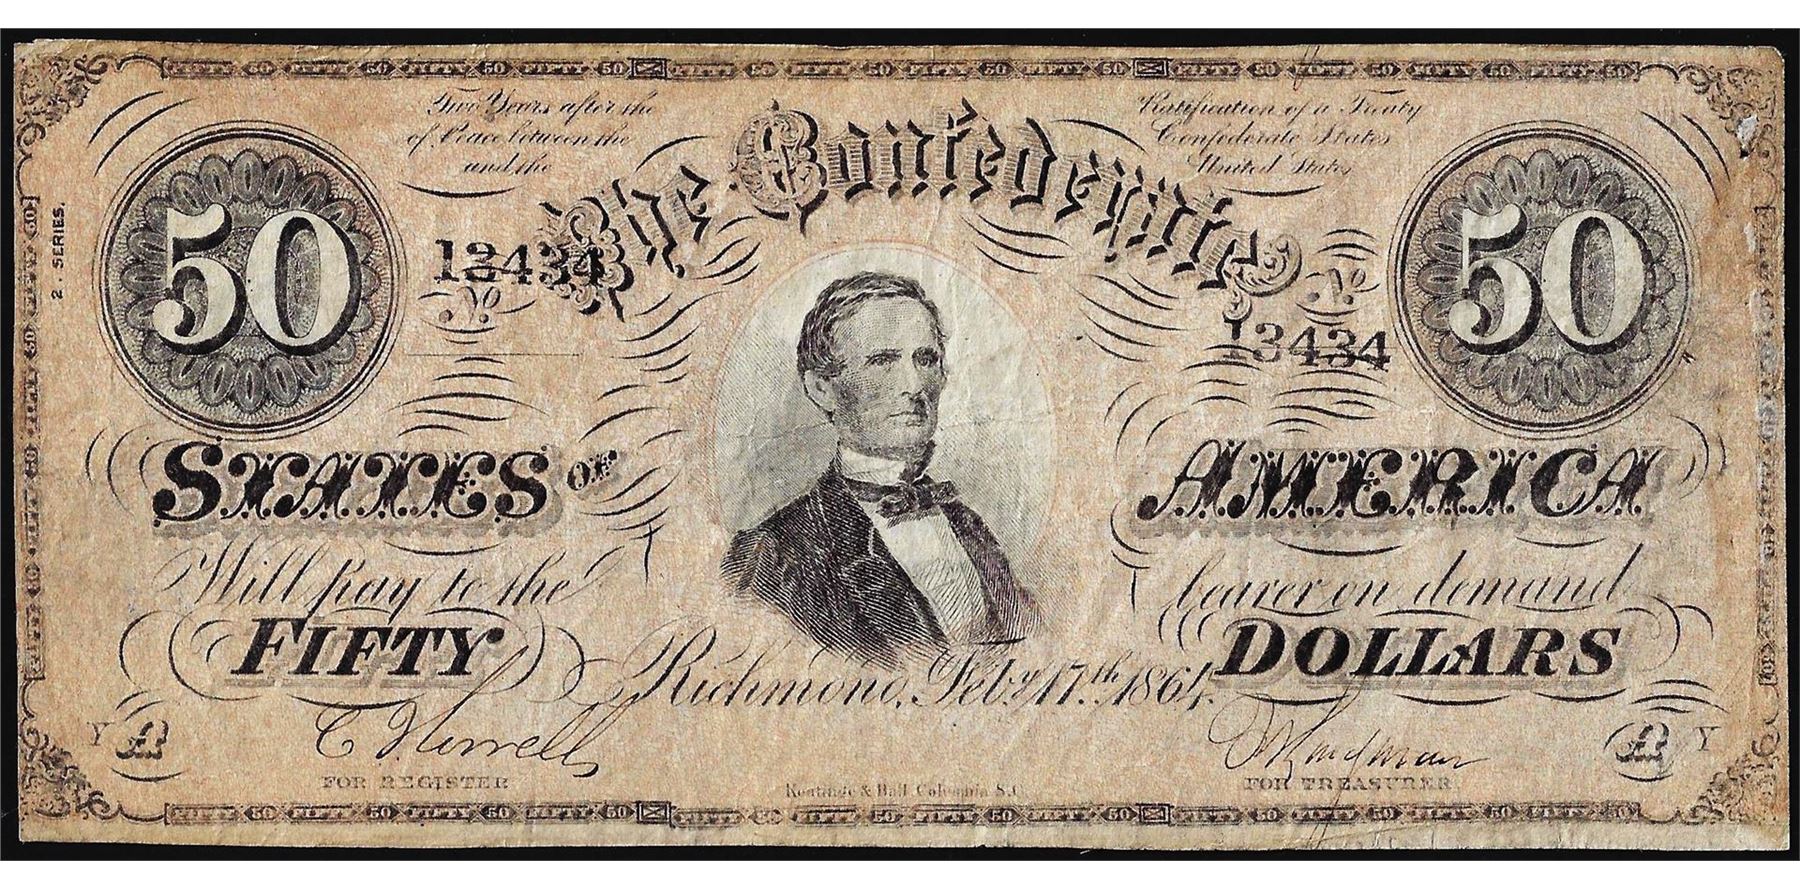 FIFTY 50 FIFTY 50 FIFTY 50 FIFTY 50 FIFTY 50 FIFTY 50 FIFTY 50 FIFTY 50 FIFTY 50 FIFTY 50 FIFTY 50 FIFTY 50
Two Years after the Ratification of a Treaty
of Peace between the Confederate States
and the United States
The Confederate
50 50
2. SERIES.
13434 No
No 13434
STATES OF AMERICA
Will pay to the bearer on demand
FIFTY DOLLARS
Richmond, Feby. 17th, 1864.
Y A A Y
FOR REGISTER FOR TREASURER
Keatinge & Ball Columbia S.C.
FIFTY 50 FIFTY 50 FIFTY 50 FIFTY 50 FIFTY 50 FIFTY 50 FIFTY 50 FIFTY 50 FIFTY 50 FIFTY 50 FIFTY 50 FIFTY 50